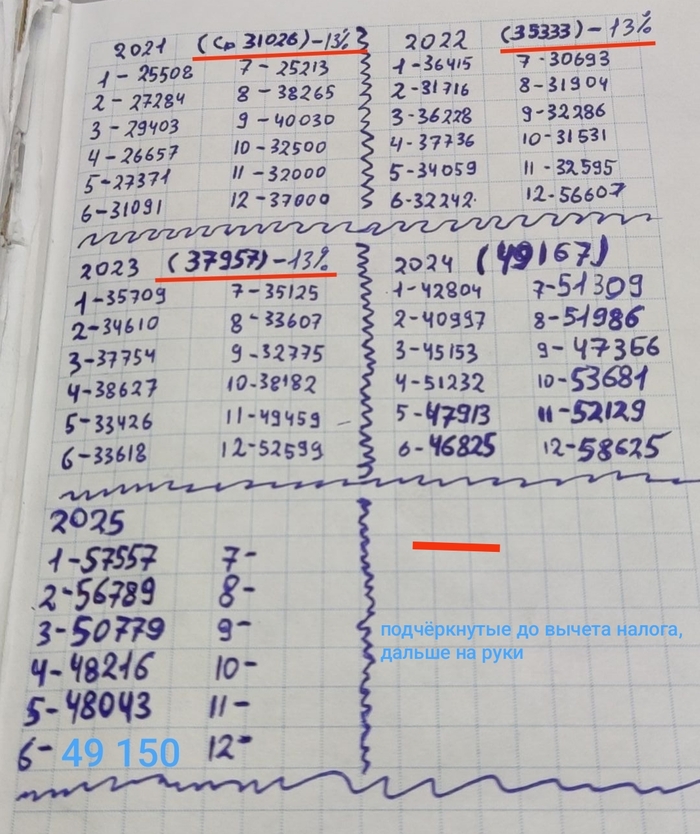 2021 (Ср 31026) - 13%
1 - 25508
2 - 27284
3 - 29403
4 - 26657
5 - 27371
6 - 31091
7 - 25213
8 - 38265
9 - 40030
10 - 32500
11 - 32000
12 - 37000
2022 (35333) - 13%
1 - 36415
2 - 31716
3 - 36228
4 - 37736
5 - 34059
6 - 32242
7 - 30693
8 - 31904
9 - 32286
10 - 31531
11 - 32595
12 - 56607
2023 (37957) - 13%
1 - 35709
2 - 34610
3 - 37754
4 - 38627
5 - 33426
6 - 33618
7 - 35125
8 - 33607
9 - 32775
10 - 38182
11 - 49459
12 - 52599
2024 (49167)
1 - 42804
2 - 40997
3 - 45153
4 - 51232
5 - 47913
6 - 46825
7 - 51309
8 - 51986
9 - 47366
10 - 53681
11 - 52129
12 - 58625
2025
1 - 57557
2 - 56789
3 - 50779
4 - 48216
5 - 48043
6 - 49 150
7 -
8 -
9 -
10 -
11 -
12 -
подчёркнутые до вычета налога,
дальше на руки